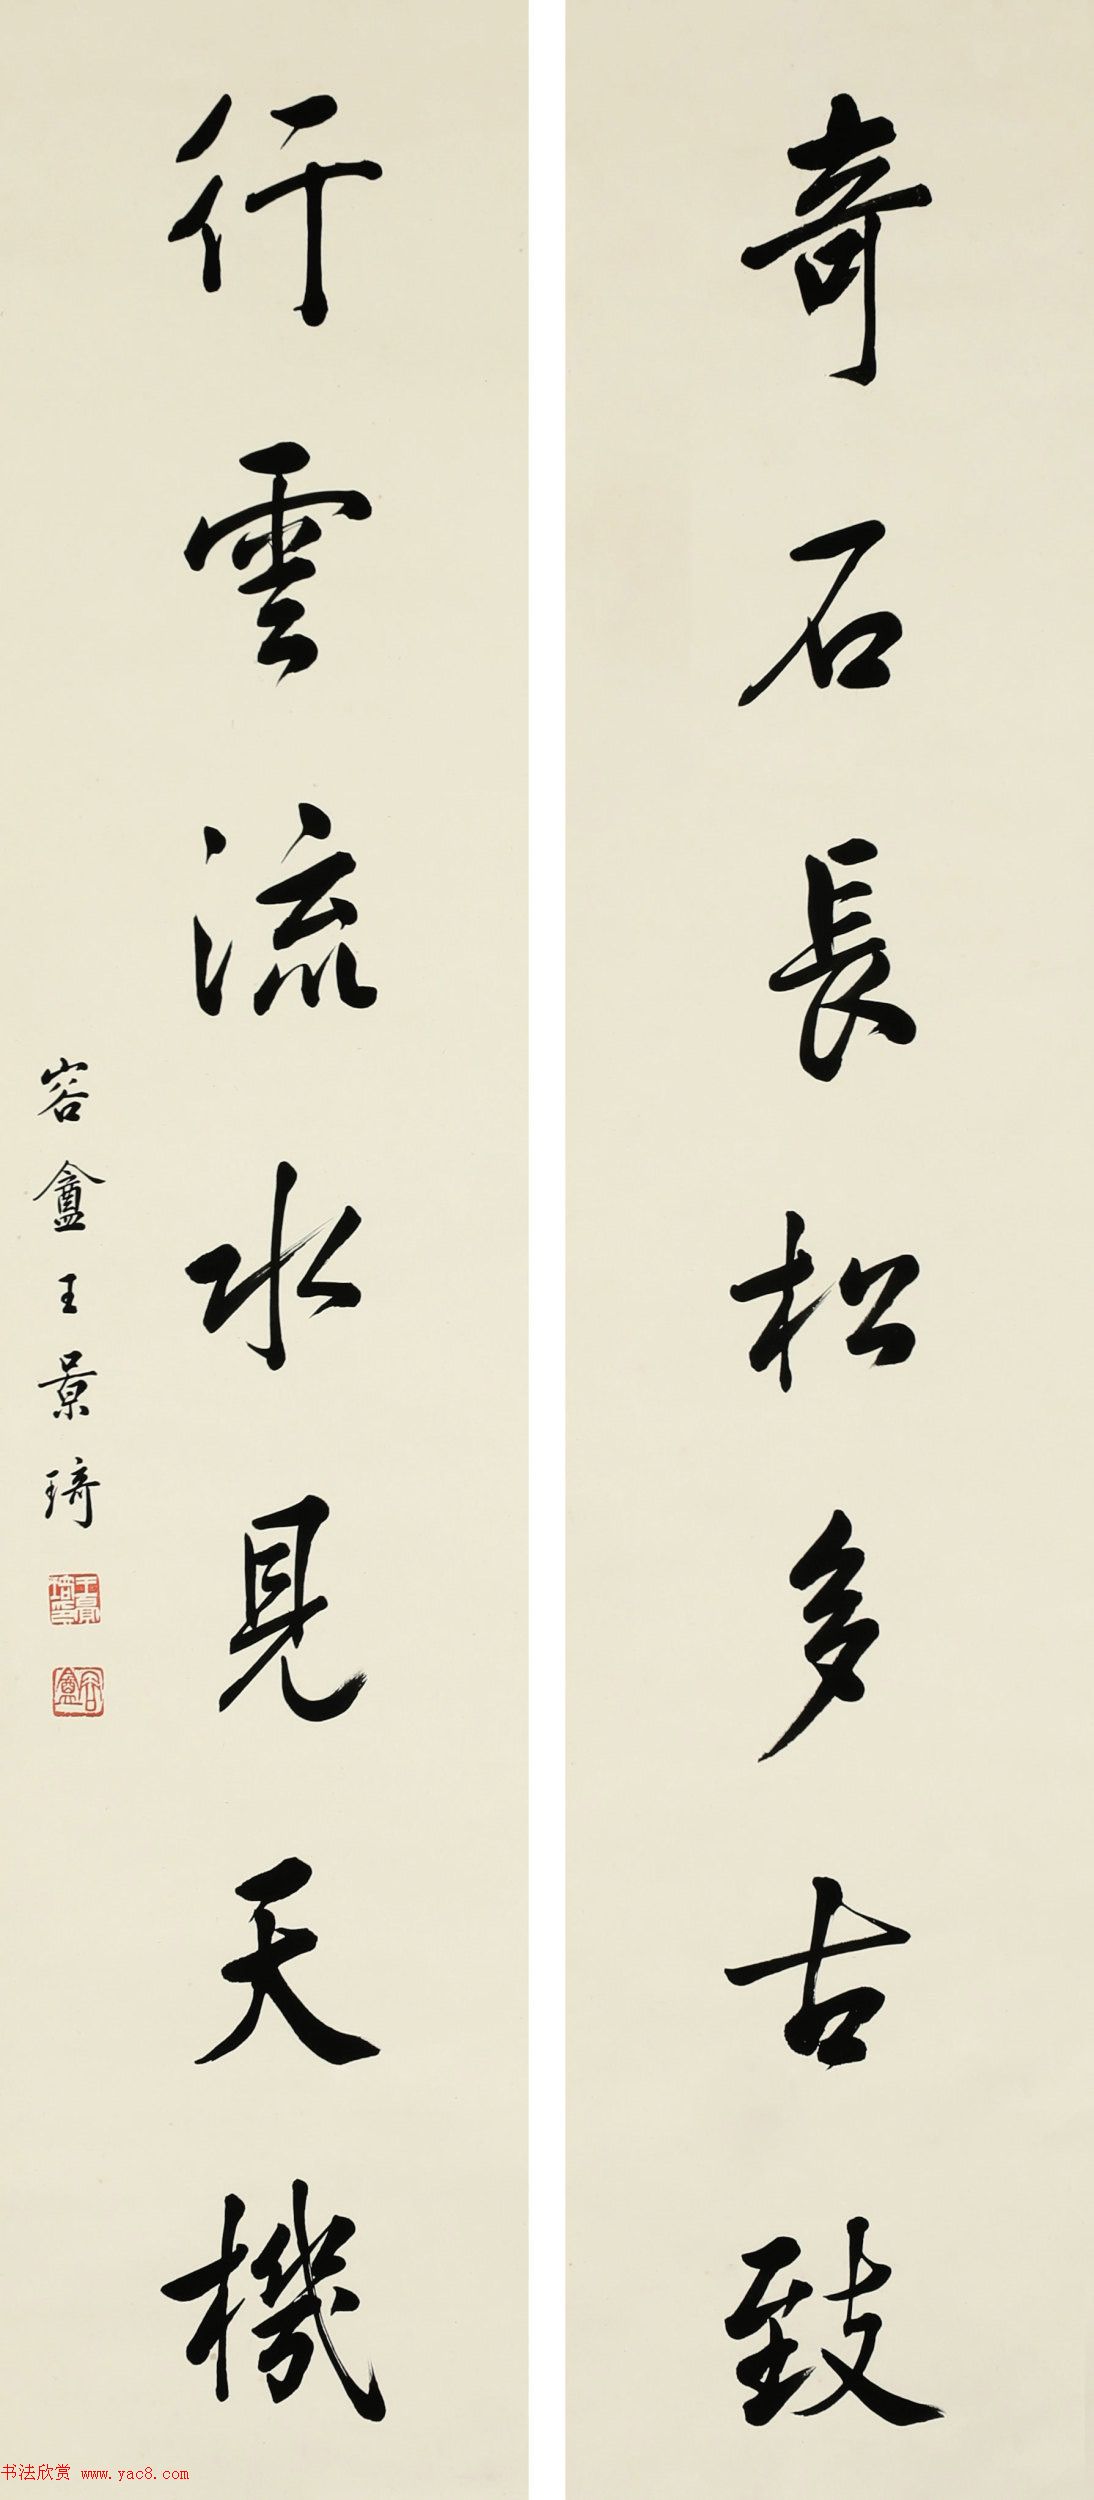 奇石長松多古致
行雲流水見天機
峉盦王景琦
书法欣赏 www.yac8.com